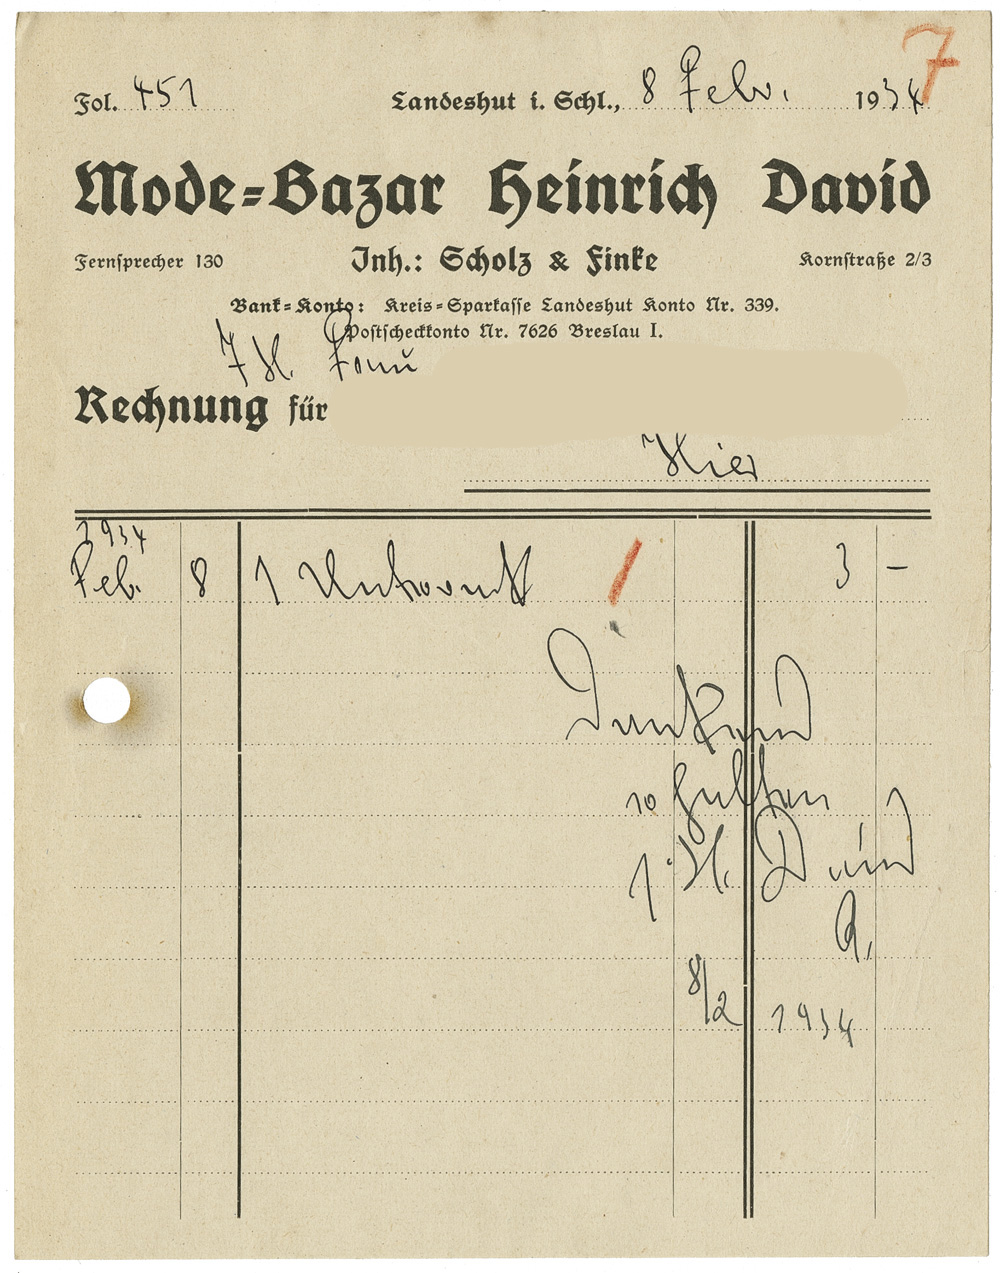 7
Fol. 451 Landeshut i. Schl., 8 Febr. 1934
Mode-Bazar Heinrich David
Fernsprecher 130 Inh.: Scholz & Finke Kornstraße 2/3
Bank-Konto: Kreis-Sparkasse Landeshut Konto Nr. 339.
Postscheckkonto Nr. 7626 Breslau I.
Rechnung für
Hier
1934
Feb. 8 1 3 -
Dankend
erhalten
H. David
8/2 1934